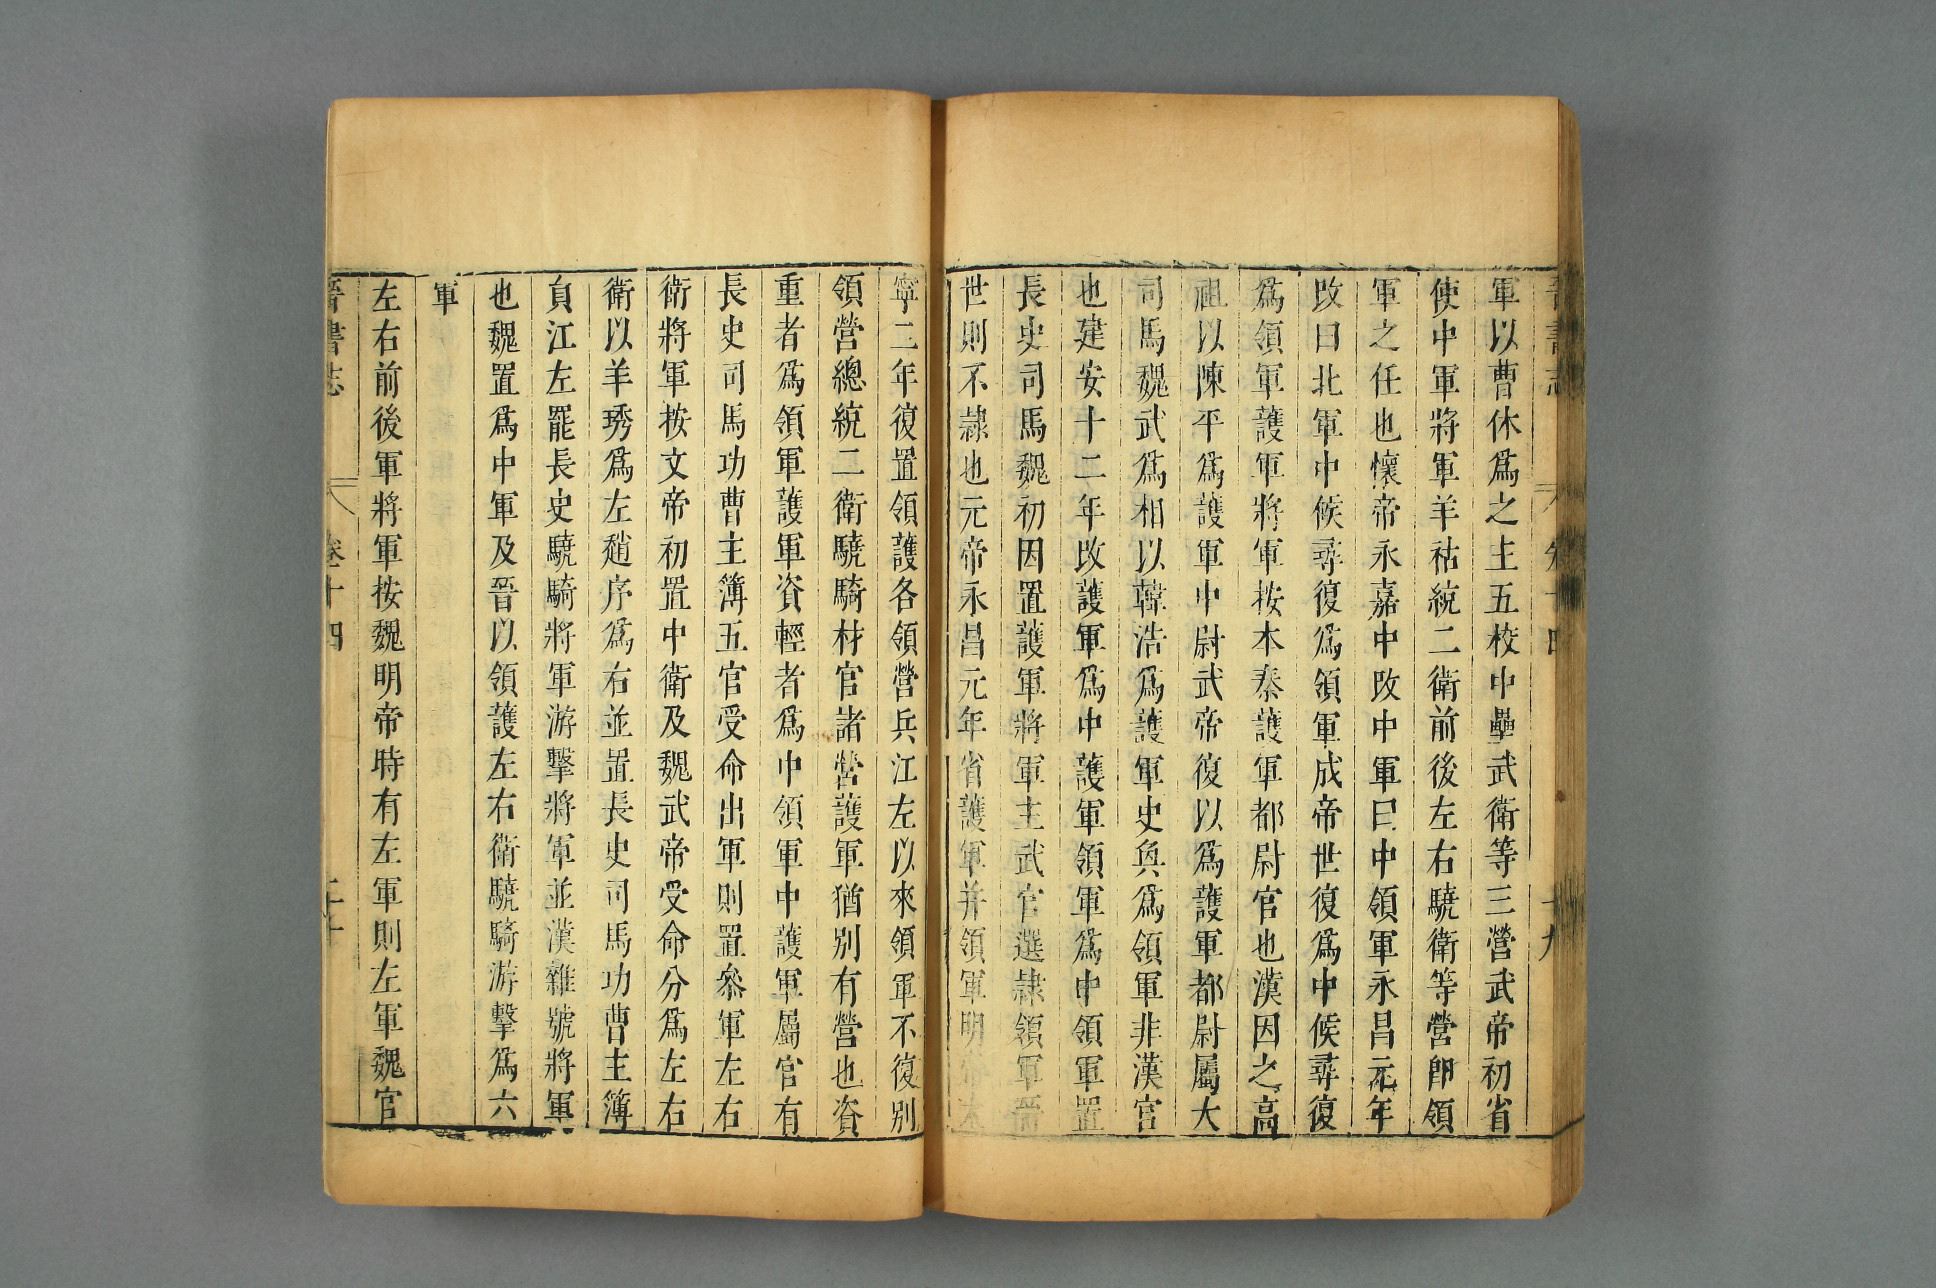 晉書志 卷十四 十九
軍以曹休爲之主五校中壘武衛等三營武帝初省
使中軍將軍羊祜統二衛前後左右驍衛等營卽領
軍之任也懷帝永嘉中改中軍曰中領軍永昌元年
改曰北軍中候尋復爲領軍成帝世復爲中候尋復
爲領軍護軍將軍按本秦護軍都尉官也漢因之高
祖以陳平爲護軍中尉武帝復以爲護軍都尉屬大
司馬魏武爲相以韓浩爲護軍史奐爲領軍非漢官
也建安十二年改護軍爲中護軍領軍爲中領軍置
長史司馬魏初因置護軍將軍主武官選隷領軍晉
世則不隷也元帝永昌元年省護軍并領軍明帝太
寧二年復置領護各領營兵江左以來領軍不復別
領營總統二衛驍騎材官諸營護軍猶別有營也資
重者爲領軍護軍資輕者爲中領軍中護軍屬官有
長史司馬功曹主簿五官受命出軍則置叅軍左右
衛將軍按文帝初置中衛及魏武帝受命分爲左右
衛以羊琇爲左趙序爲右並置長史司馬功曹主簿
貟江左罷長史驍騎將軍游擊將軍並漢雜號將軍
也魏置爲中軍及晉以領護左右衛驍騎游擊爲六
軍
左右前後軍將軍按魏明帝時有左軍則左軍魏官
晉書志 卷十四 二十